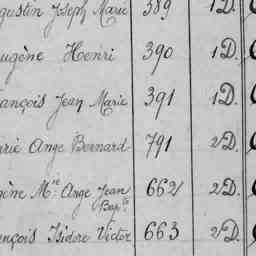 gustin Joseph Marie 389 1 D.
ugène Henri 390 1 D.
ançois Jean Marie 391 1 D.
arie Ange Bernard 791 2 D.
gène Mie Ange Jean Bapte 662 2 D.
ançois Isidore Victor 663 2 D.